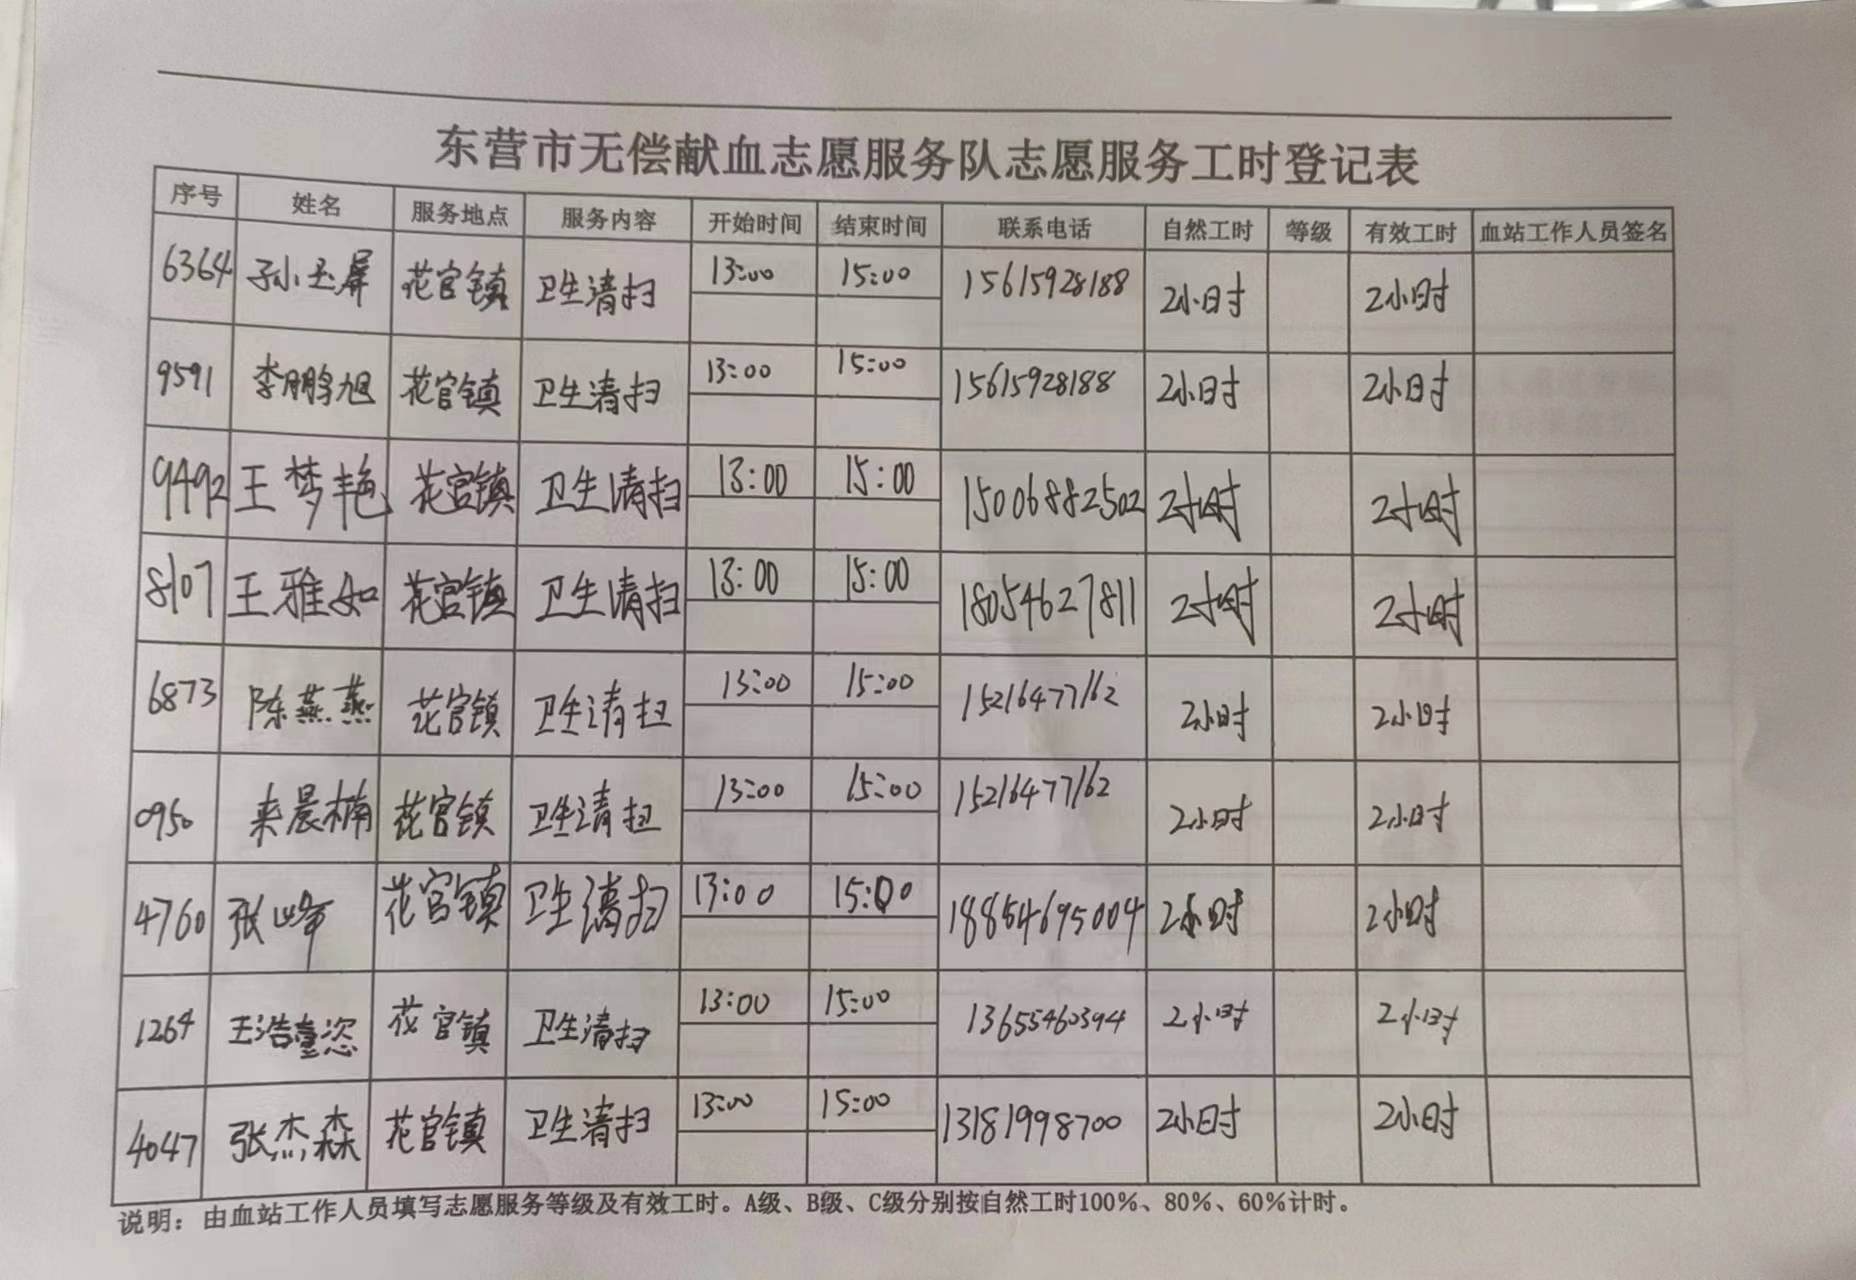 东营市无偿献血志愿服务队志愿服务工时登记表
序号 姓名 服务地点 服务内容 开始时间 结束时间 联系电话 自然工时 等级 有效工时 血站工作人员签名
6364 孙玉屏 花官镇 卫生清扫 13:00 15:00 15615928188 2小时 2小时
9591 李鹏旭 花官镇 卫生清扫 13:00 15:00 15615928188 2小时 2小时
9492 王梦艳 花官镇 卫生清扫 13:00 15:00 15006882502 2小时 2小时
8107 王雅如 花官镇 卫生清扫 13:00 15:00 18054627811 2小时 2小时
6873 陈燕燕 花官镇 卫生清扫 13:00 15:00 15216477162 2小时 2小时
0950 来晨楠 花官镇 卫生清扫 13:00 15:00 15216477162 2小时 2小时
4760 张峰 花官镇 卫生清扫 13:00 15:00 18854695004 2小时 2小时
1264 王浩 花官镇 卫生清扫 13:00 15:00 13655460394 2小时 2小时
4047 张杰森 花官镇 卫生清扫 13:00 15:00 13181998700 2小时 2小时
说明：由血站工作人员填写志愿服务等级及有效工时。A级、B级、C级分别按自然工时100%、80%、60%计时。